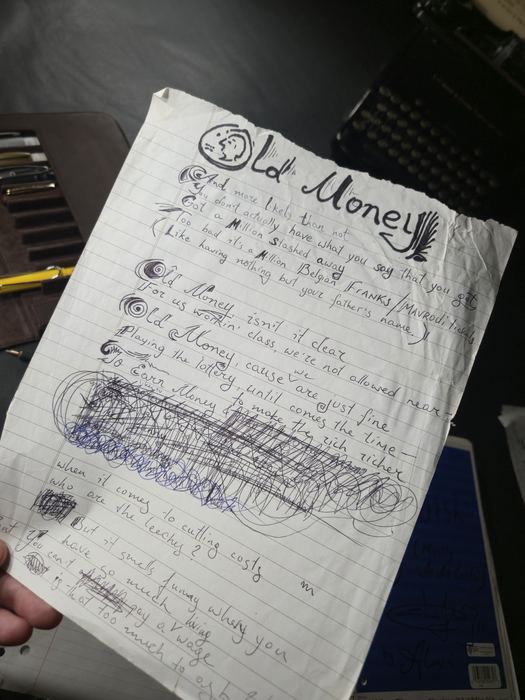 Old Money
And more likely than not
You don't actually have what you say that you got
Got a Million slashed away
Too bad it's a Million Belgian FRANKS / MAVRODI tickets
Like having nothing but your father's name.
Old Money isn't it clear
For us workin' class, we're not allowed near
Old Money, cause we are just fine
Playing the lottery, until comes the time
To Earn Money to make the rich richer
when it comes to cutting costs
who are the leechy?
But it smells funny where you
have so much
You can't pay a living wage
is that too much to ask